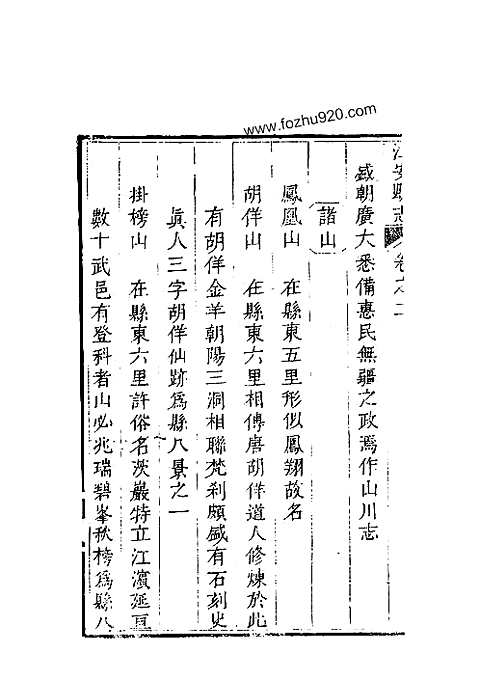 www.fozhu920.com
江安縣志 卷之二
盛朝廣大悉備惠民無疆之政焉作山川志
諸山
鳳凰山 在縣東五里形似鳳翔故名
胡佯山 在縣東六里相傳唐胡佯道人修煉於此
有胡佯金羊朝陽三洞相聯梵刹頗盛有石刻史
眞人三字胡佯仙跡爲縣八景之一
掛榜山 在縣東六里許俗名茨巖特立江濵延亘
數十武邑有登科者山必兆瑞碧峯秋榜爲縣八